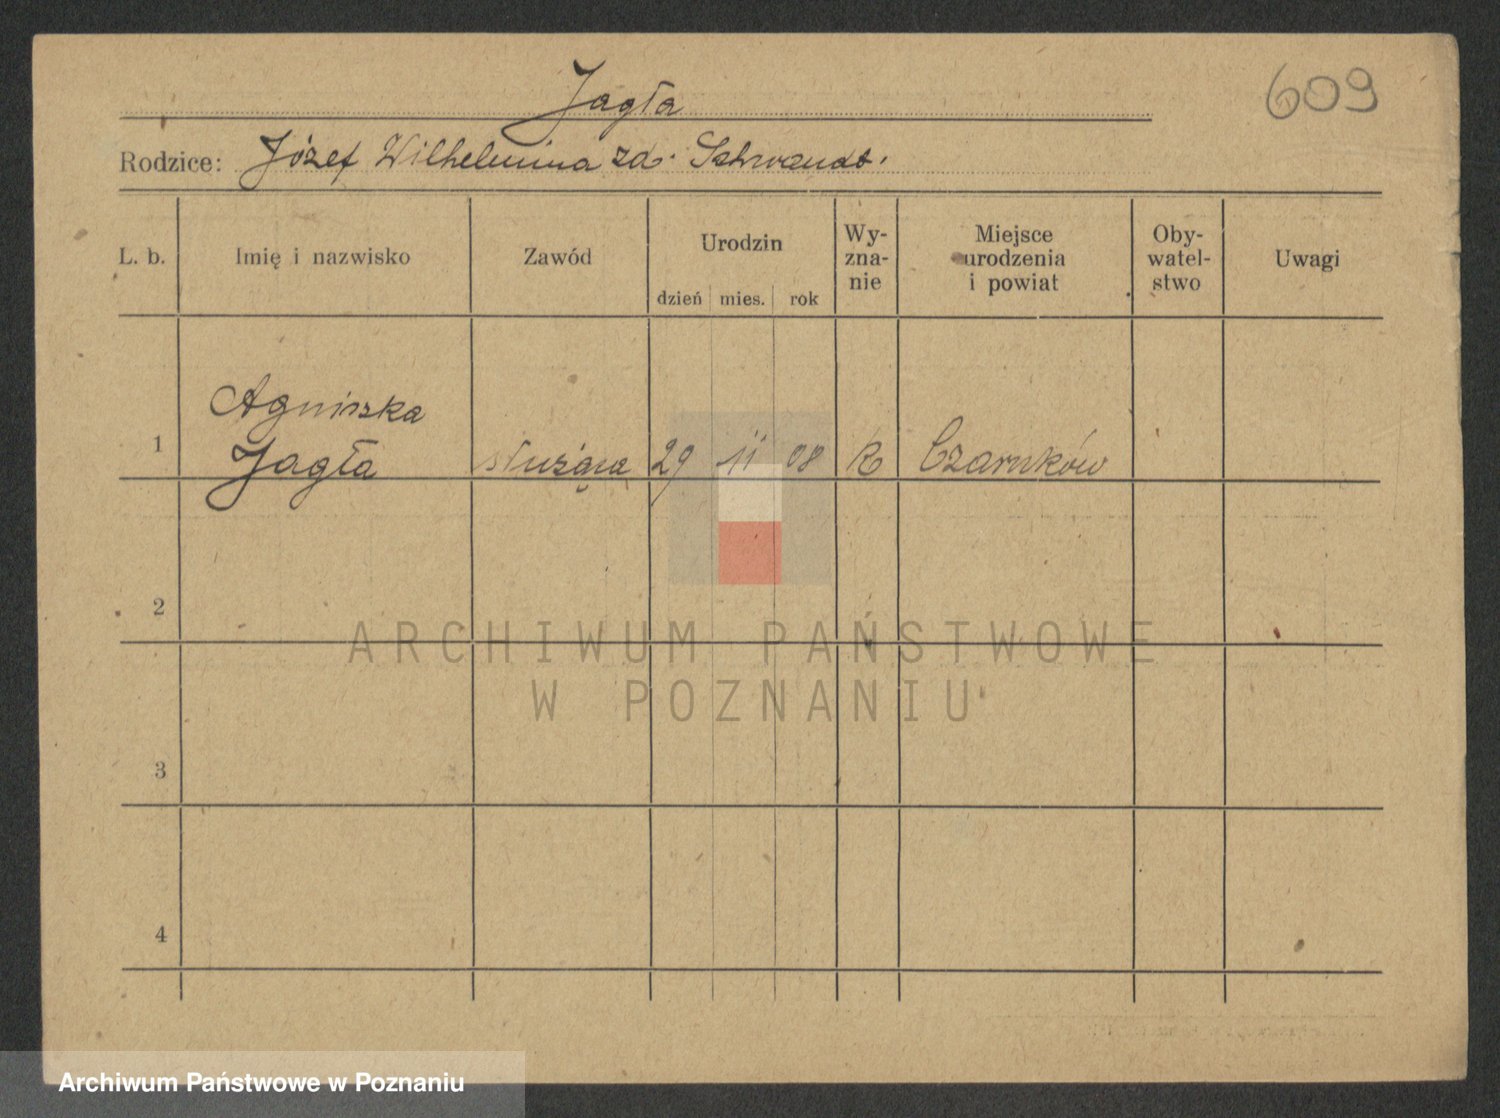 609
Jagła
Rodzice: Józef Wilhelmina zd.
L. b. Imię i nazwisko Zawód Urodzin dzień mies. rok Wy- zna- nie Miejsce urodzenia i powiat Oby- watel- stwo Uwagi
Agniszka
1 Jagła służąca 29 11 08 R Czarnków
2
ARCHIWUM PAŃSTWOWE
W POZNANIU
3
4
Archiwum Państwowe w Poznaniu